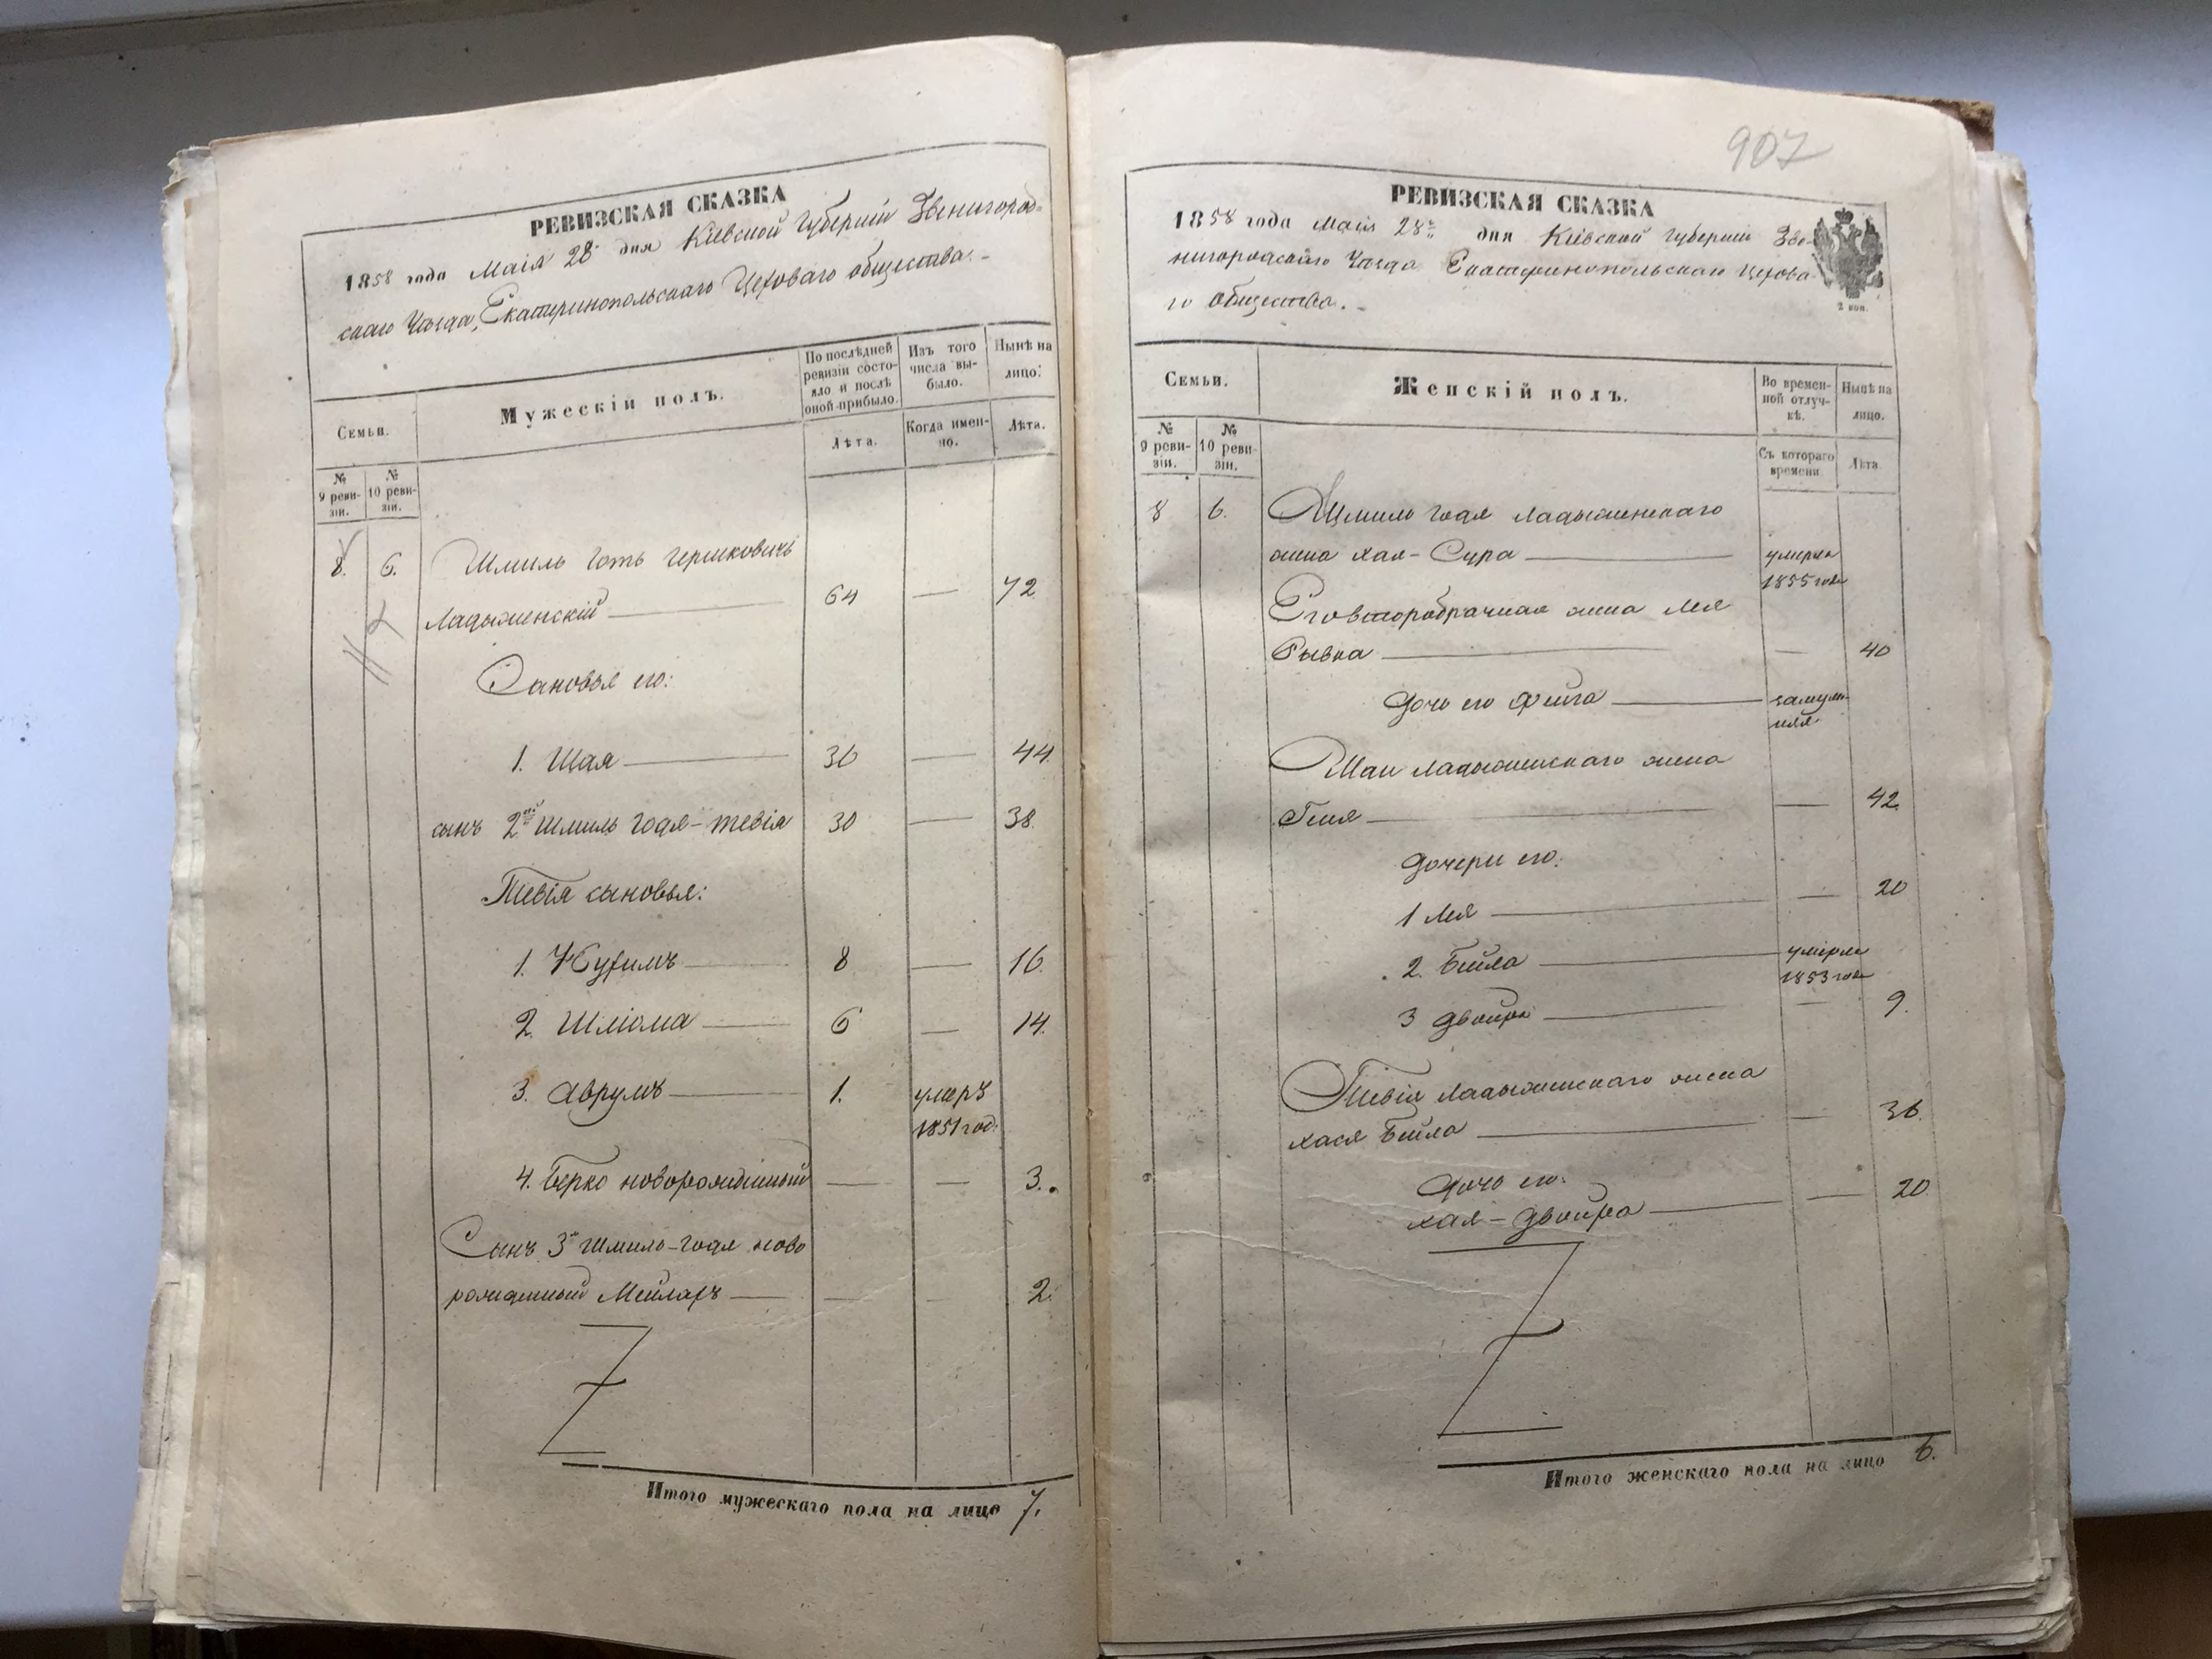 РЕВИЗСКАЯ СКАЗКА
1858 года Маія 28 дня Кіевской Губерніи Звенигород-
скаго Уѣзда, Екатеринопольскаго Цеховаго общества.
Семьи.
Мужескій полъ.
По послѣдней ревизіи состояло и послѣ оной прибыло.
Изъ того числа вы-было.
Нынѣ на лицо.
Лѣта.
Когда имен-но.
Лѣта.
№ 9 реви-зіи.
№ 10 реви-зіи.
8. 6. Шмиль Гершковичъ
Ладыженскій 64 — 72
Сыновья его:
1. Шая 36 — 44.
сынъ 2й Шмиль Годя-Тевія 30 — 38.
Тевія сыновья:
1. 8 — 16.
2. Шліома 6 — 14.
3. Аврумъ 1. умеръ
1851 год.
4. Берко новорожденный — — 3.
Сынъ 3й Шмиль-Годя ново
рожденный — — 2.
Итого мужескаго пола на лицо 7.
907
РЕВИЗСКАЯ СКАЗКА
1858 года Маія 28го дня Кіевской Губерніи Зве-
нигородскаго Уѣзда Екатеринопольскаго Цехова-
го общества.
2 коп.
Семьи.
Женскій полъ.
Во времен-ной отлуч-кѣ.
Нынѣ на лицо.
№ 9 реви-зіи.
№ 10 реви-зіи.
Съ котораго времени.
Лѣта.
8 6. Шмиль Годя Ладыженскаго
жена Хая-Сура умерла
1855 года
Его второбрачная жена Лея
Рывка — 40
Дочь его Фейга замуж-
няя
Шаи Ладыженскаго жена
— 42.
Дочери его:
1 Лея — 20
2. Бейла умерла
1853 года
3 Двойра — 9.
Тевія Ладыженскаго жена
Хася Бейла — 36.
Дочь его:
Хая-Двойра — 20
Итого женскаго пола на лицо 6.